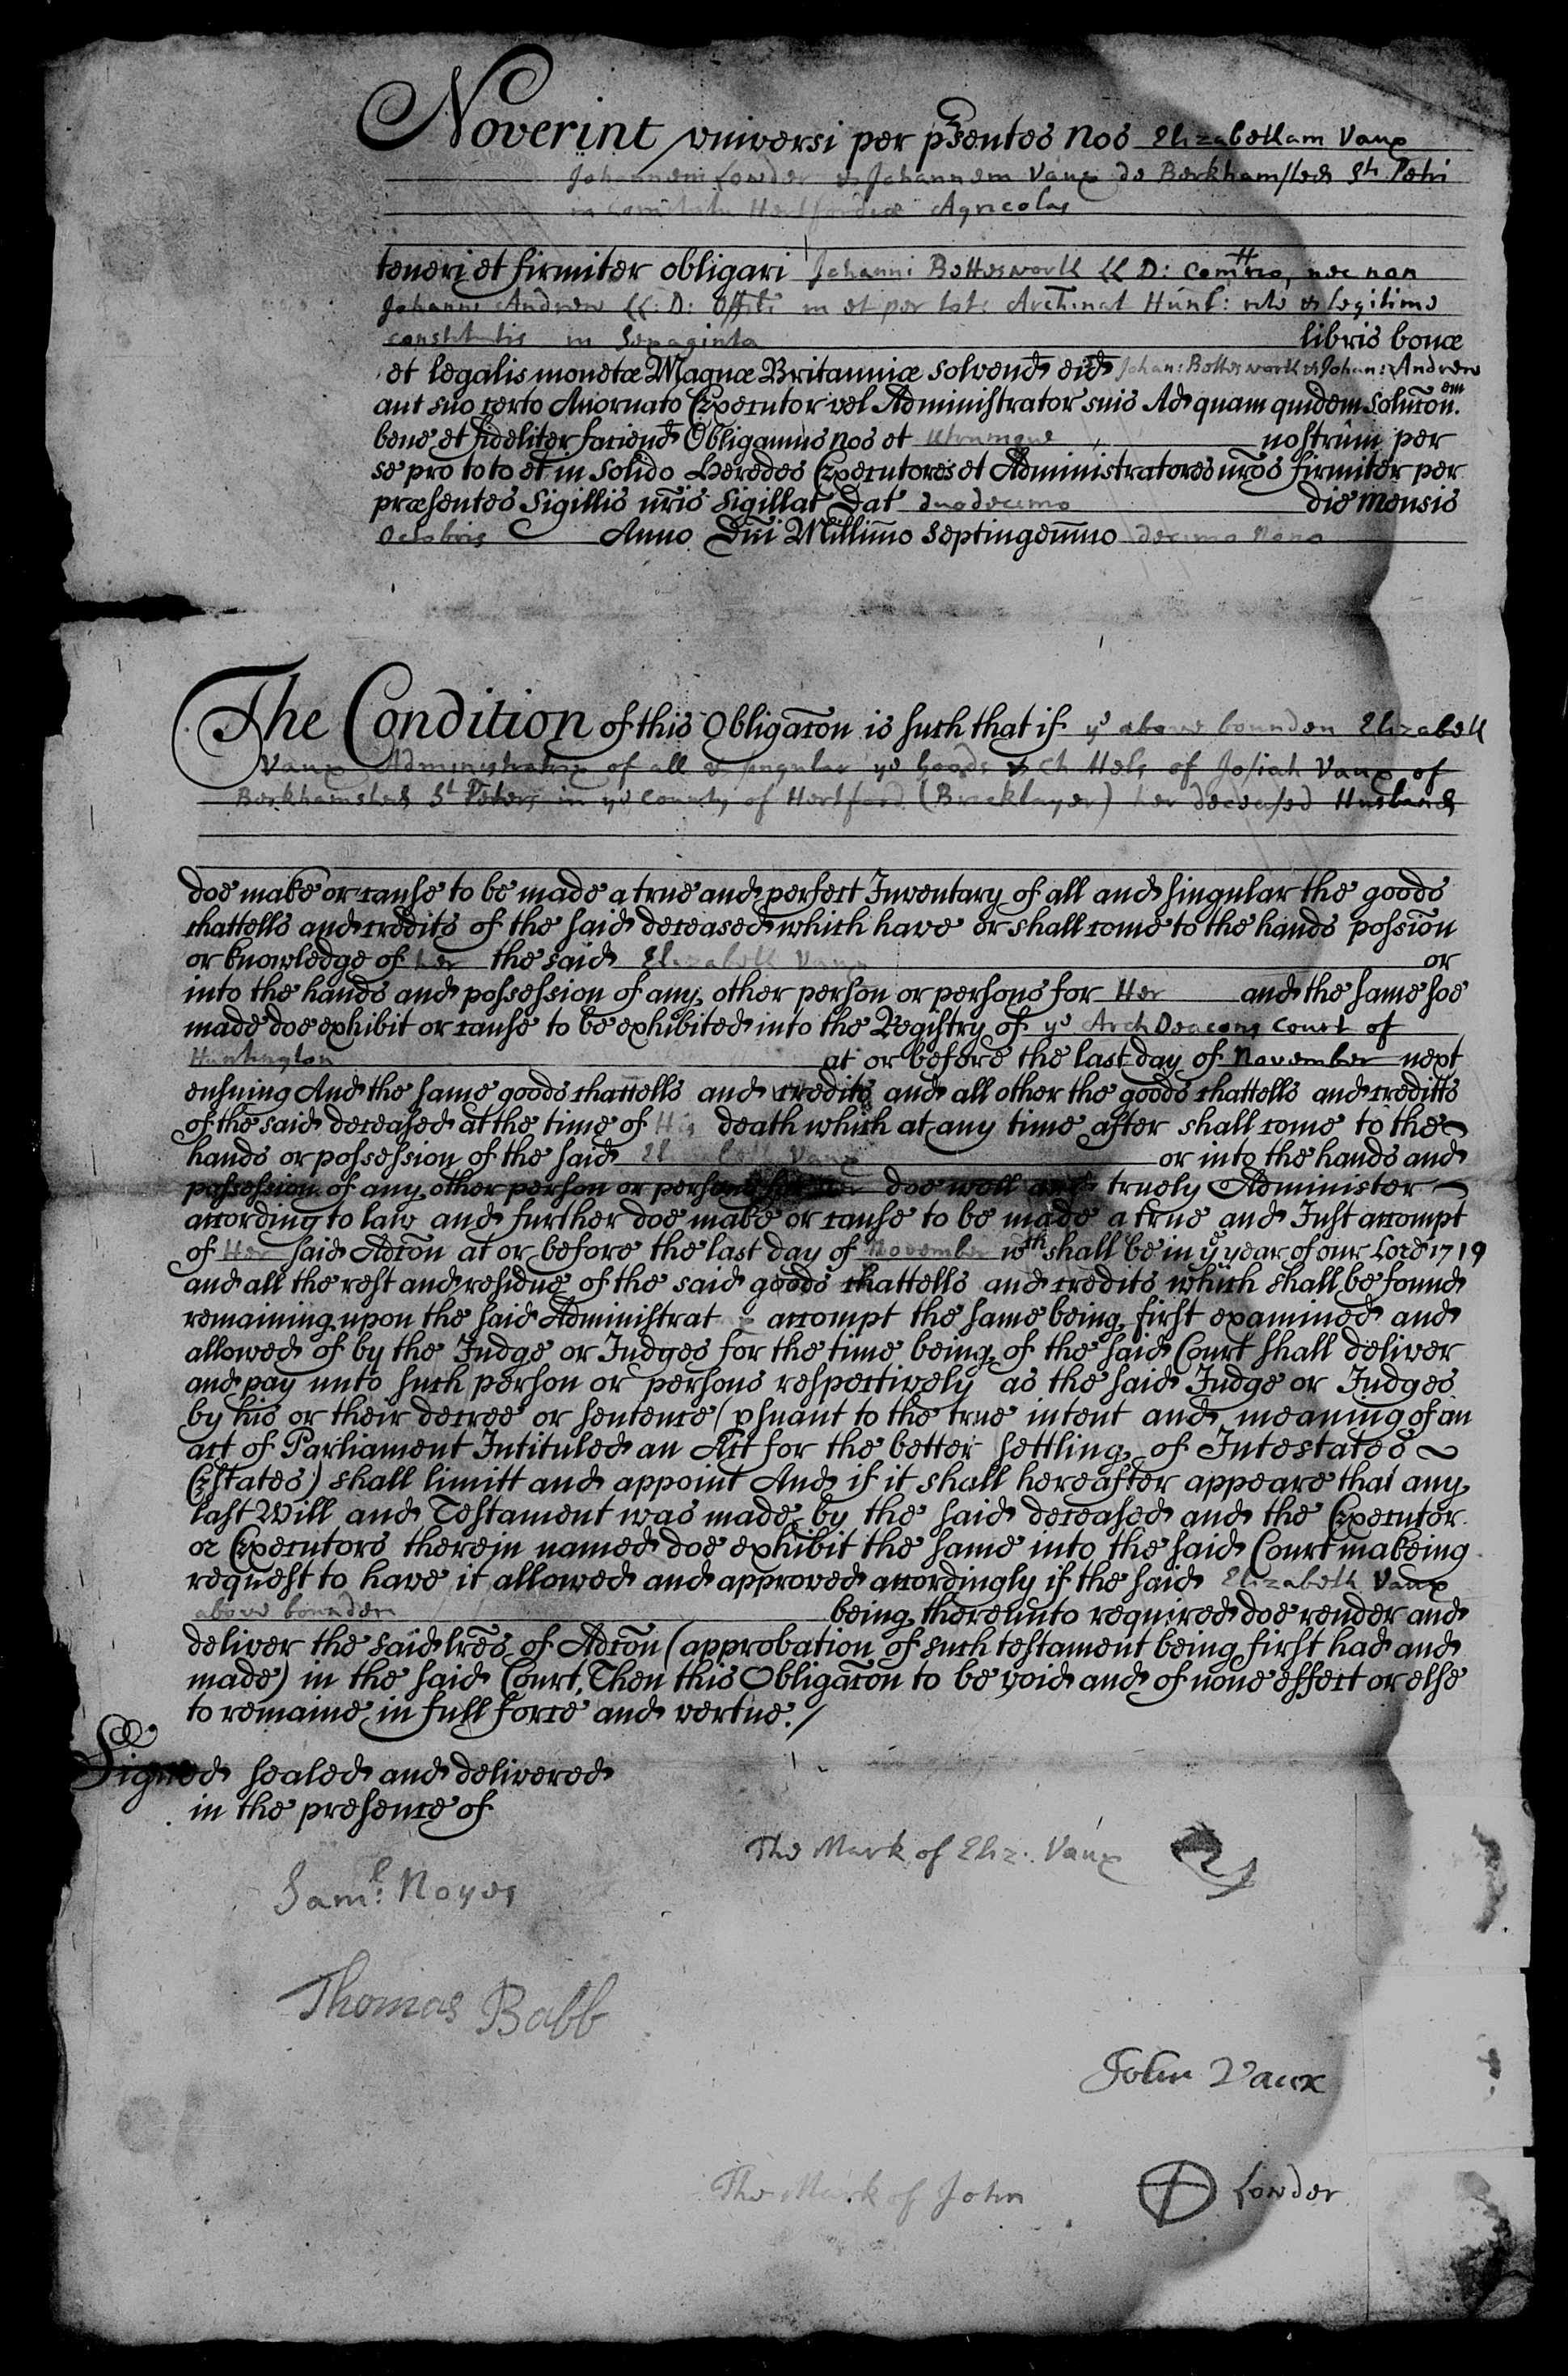 Noverint universi per p̄sentes Nos Elizabetham Vaux
Johannem Lowder & Johannem Vaux de Berkhamsted Sti Petri
in Comitatu Hertfordiæ Agricolas
teneri et firmiter obligari Johanni Bettesworth LL D: Com̄rio, nec non
Johanni Andrew LL: D: Offīli in et per tot: Archinat Hunt: rite & legitime
constitutis in Sexaginta libris bonæ
et legalis monetæ Magnæ Britanniæ solvend eid Johan: Bettesworth & Johan: Andrew
aut suo certo Attornato Executor vel Administrator suis Ad quam quidem soluc̄onem
bene et fideliter faciend Obligamus nos et utrumque nostrûm per
se pro toto et in solido Heredes Executores et Administratores nr̄os firmiter per
præsentes Sigillis nr̄is Sigillat Dat duodecimo die mensis
Octobris Anno Dn̄i Millim̄o Septingem̄mo decimo Nono
The Condition of this Obligac̄on is such that if ye above bounden Elizabeth
Vaux Administratrix of all & singular ye Goods & Chattels of Josiah Vaux of
Berkhamsted St Peters in ye County of Hertford (Bricklayer) her deceased Husband
doe make or cause to be made a true and perfect Inventary of all and singular the goods
chattells and credits of the said deceased which have or shall come to the hands possion
or knowledge of her the said Elizabeth Vaux or
into the hands and possession of any other person or persons for Her and the same soe
made doe exhibit or cause to be exhibited into the Registry of ye Arch Deacons Court of
Huntington at or before the last day of November next
ensuing And the same goods chattells and credits and all other the goods chattells and creditts
of the said deceased at the time of His death which at any time after shall come to the
hands or possession of the said Elizabeth Vaux or into the hands and
possession of any other person or persons for her doe well and truely Administer
according to law and further doe make or cause to be made a true and Just accompt
of Her said Adc̄on at or before the last day of November wch shall be in ye year of our Lord 1719
and all the rest and residue of the said goods chattells and credits which shall be found
remaining upon the said Administrat accompt the same being first examined and
allowed of by the Judge or Judges for the time being of the said Court shall deliver
and pay unto such person or persons respectively as the said Judge or Judges
by his or their decree or sentence (psuant to the true intent and meaning of an
act of Parliament Intituled an Act for the better settling of Intestates
Estates) shall limitt and appoint And if it shall hereafter appeare that any
last Will and Testament was made by the said deceased and the Executor
or Executors therein named doe exhibit the same into the said Court makeing
request to have it allowed and approved accordingly if the said Elizabeth Vaux
above bounden being thereunto required doe render and
deliver the said lr̄es of Adc̄on (approbation of such testament being first had and
made) in the said Court, Then this Obligac̄on to be void and of none effect or else
to remaine in full force and vertue./
Signed sealed and delivered
in the presence of
The Mark of Eliz. Vaux
Saml: Noyes
Thomas Babb
John Vaux
The Mark of John Lowder